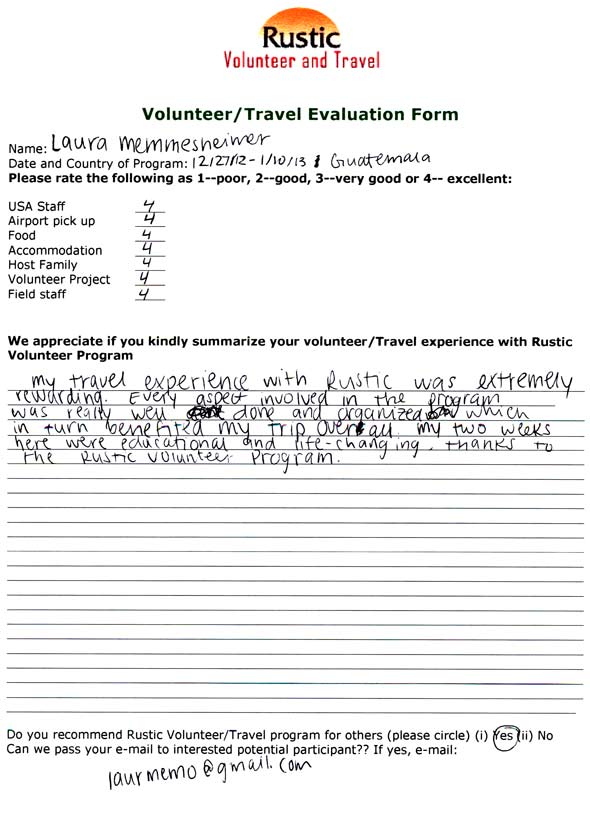 Rustic
Volunteer and Travel
Volunteer/Travel Evaluation Form
Name: Laura Memmesheimer
Date and Country of Program: 12/27/12 - 1/10/13 Guatemala
Please rate the following as 1--poor, 2--good, 3--very good or 4-- excellent:
USA Staff 4
Airport pick up 4
Food 4
Accommodation 4
Host Family 4
Volunteer Project 4
Field staff 4
We appreciate if you kindly summarize your volunteer/Travel experience with Rustic
Volunteer Program
my travel experience with Rustic was extremely
rewarding. Every aspect involved in the program
was really well done and organized which
in turn benefited my trip overall. my two weeks
here were educational and life-changing, thanks to
the Rustic Volunteer Program.
Do you recommend Rustic Volunteer/Travel program for others (please circle) (i) Yes (ii) No
Can we pass your e-mail to interested potential participant?? If yes, e-mail:
laurmemo@gmail.com